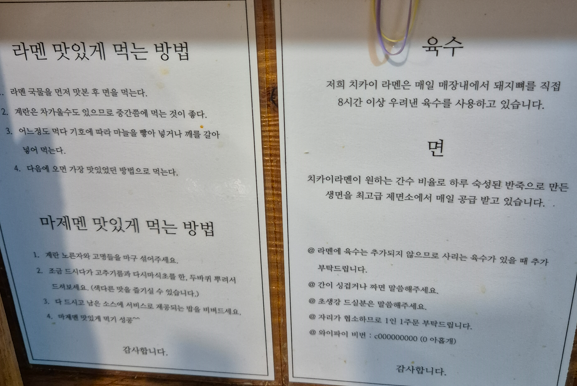 라멘 맛있게 먹는 방법
1. 라멘 국물을 먼저 맛본 후 면을 먹는다.
2. 계란은 차가울수도 있으므로 중간쯤에 먹는 것이 좋다.
3. 어느정도 먹다 기호에 따라 마늘을 빻아 넣거나 깨를 갈아
넣어 먹는다.
4. 다음에 오면 가장 맛있었던 방법으로 먹는다.
마제멘 맛있게 먹는 방법
1. 계란 노른자와 고명들을 마구 섞어주세요.
2. 조금 드시다가 고추기름과 다시마식초를 한, 두바퀴 뿌려서
드셔보세요. (색다른 맛을 즐기실 수 있습니다.)
3. 다 드시고 남은 소스에 서비스로 제공되는 밥을 비벼드세요.
4. 마제멘 맛있게 먹기 성공^^
감사합니다.
육수
저희 치카이 라멘은 매일 매장내에서 돼지뼈를 직접
8시간 이상 우려낸 육수를 사용하고 있습니다.
면
치카이라멘이 원하는 간수 비율로 하루 숙성된 반죽으로 만든
생면을 최고급 제면소에서 매일 공급 받고 있습니다.
@ 라멘에 육수는 추가되지 않으므로 사리는 육수가 있을 때 추가
부탁드립니다.
@ 간이 싱겁거나 짜면 말씀해주세요.
@ 초생강 드실분은 말씀해주세요.
@ 자리가 협소하므로 1인 1주문 부탁드립니다.
@ 와이파이 비번 : c000000000 (0 아홉개)
감사합니다.